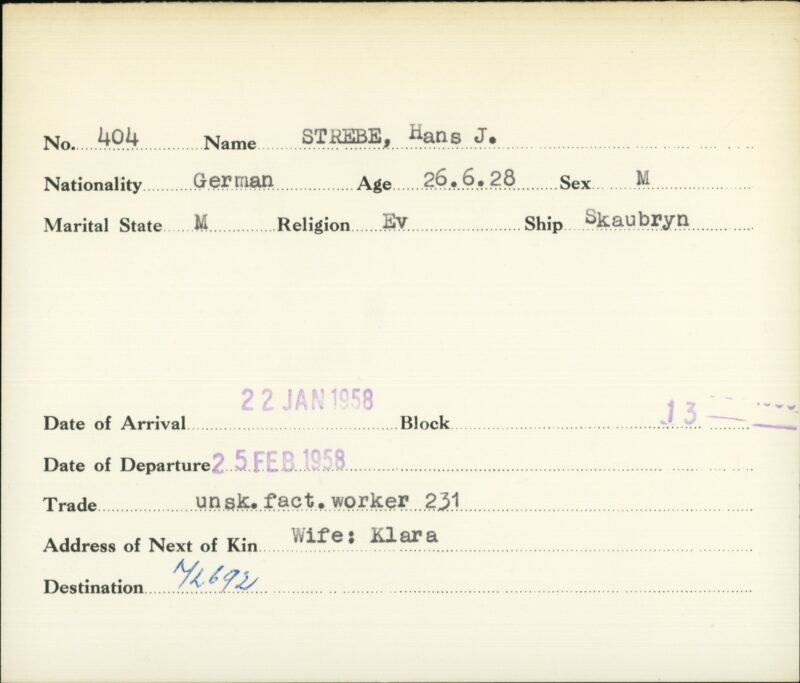 No. 404 Name STREBE, Hans J.
Nationality German Age 26.6.28 Sex M
Marital State M Religion Ev Ship Skaubryn
Date of Arrival 22 JAN 1958 Block 13
Date of Departure 25 FEB 1958
Trade unsk.fact.worker 231
Address of Next of Kin Wife: Klara
Destination